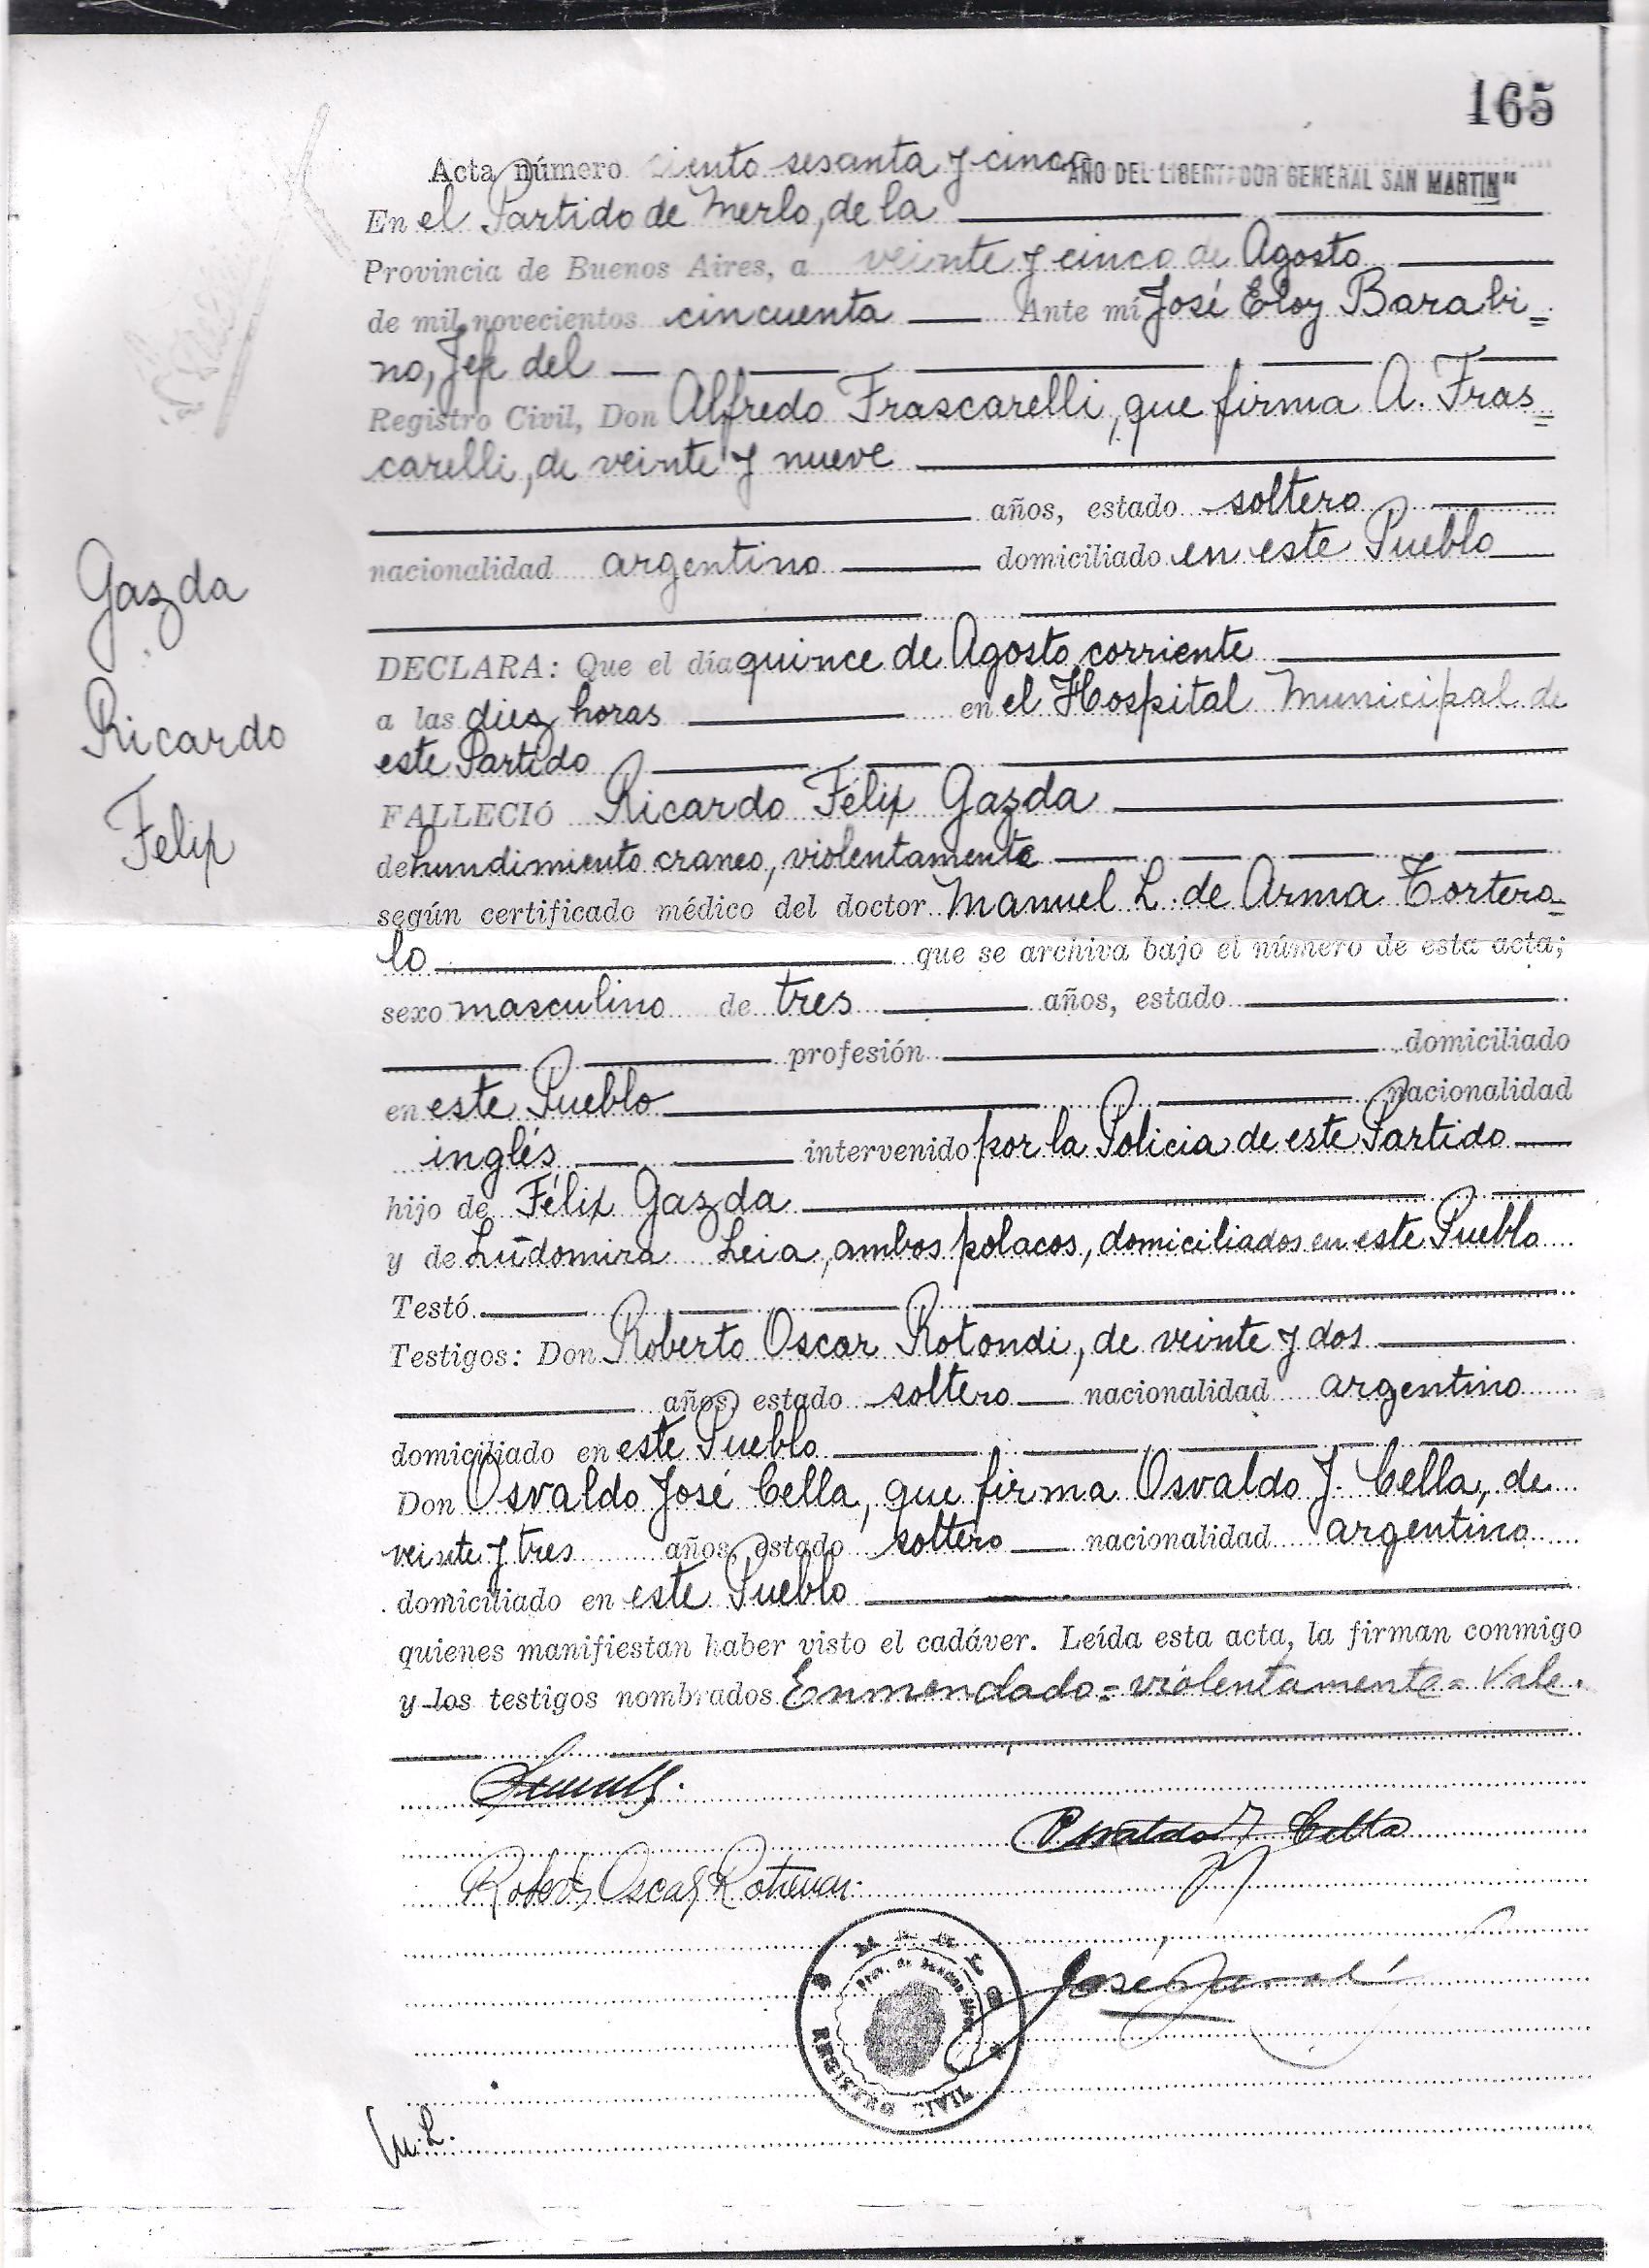 165
Acta número ciento sesenta y cinco "AÑO DEL LIBERTADOR GENERAL SAN MARTIN"
En el Partido de Merlo, de la
Provincia de Buenos Aires, a veinte y cinco de Agosto
de mil novecientos cincuenta Ante mí José Eloy Barabi=
no, Jefe del
Registro Civil, Don Alfredo Frascarelli, que firma A. Fras=
carelli, de veinte y nueve
años, estado soltero
nacionalidad argentino domiciliado en este Pueblo
Gazda
Ricardo
Felix
DECLARA: Que el día quince de Agosto corriente
a las diez horas en el Hospital Municipal de
este Partido
FALLECIÓ Ricardo Félix Gazda
de hundimiento craneo, violentamente
según certificado médico del doctor Manuel L. de Arma Tortero=
lo que se archiva bajo el número de esta acta;
sexo masculino de tres años, estado
profesión domiciliado
en este Pueblo nacionalidad
inglés intervenido por la Policia de este Partido
hijo de Félix Gazda
y de Ludomira Leia, ambos polacos, domiciliados en este Pueblo
Testó
Testigos: Don Roberto Oscar Rotondi, de veinte y dos
años, estado soltero nacionalidad argentino
domiciliado en este Pueblo
Don Osvaldo José Cella, que firma Osvaldo J. Cella, de
veinte y tres años, estado soltero nacionalidad argentino
domiciliado en este Pueblo
quienes manifiestan haber visto el cadáver. Leída esta acta, la firman conmigo
y los testigos nombrados Enmendado = violentamente = Vale.
Osvaldo J Cella
Roberto Oscar Rotondi
MERLO
REGISTRO CIVIL
José
M.L.